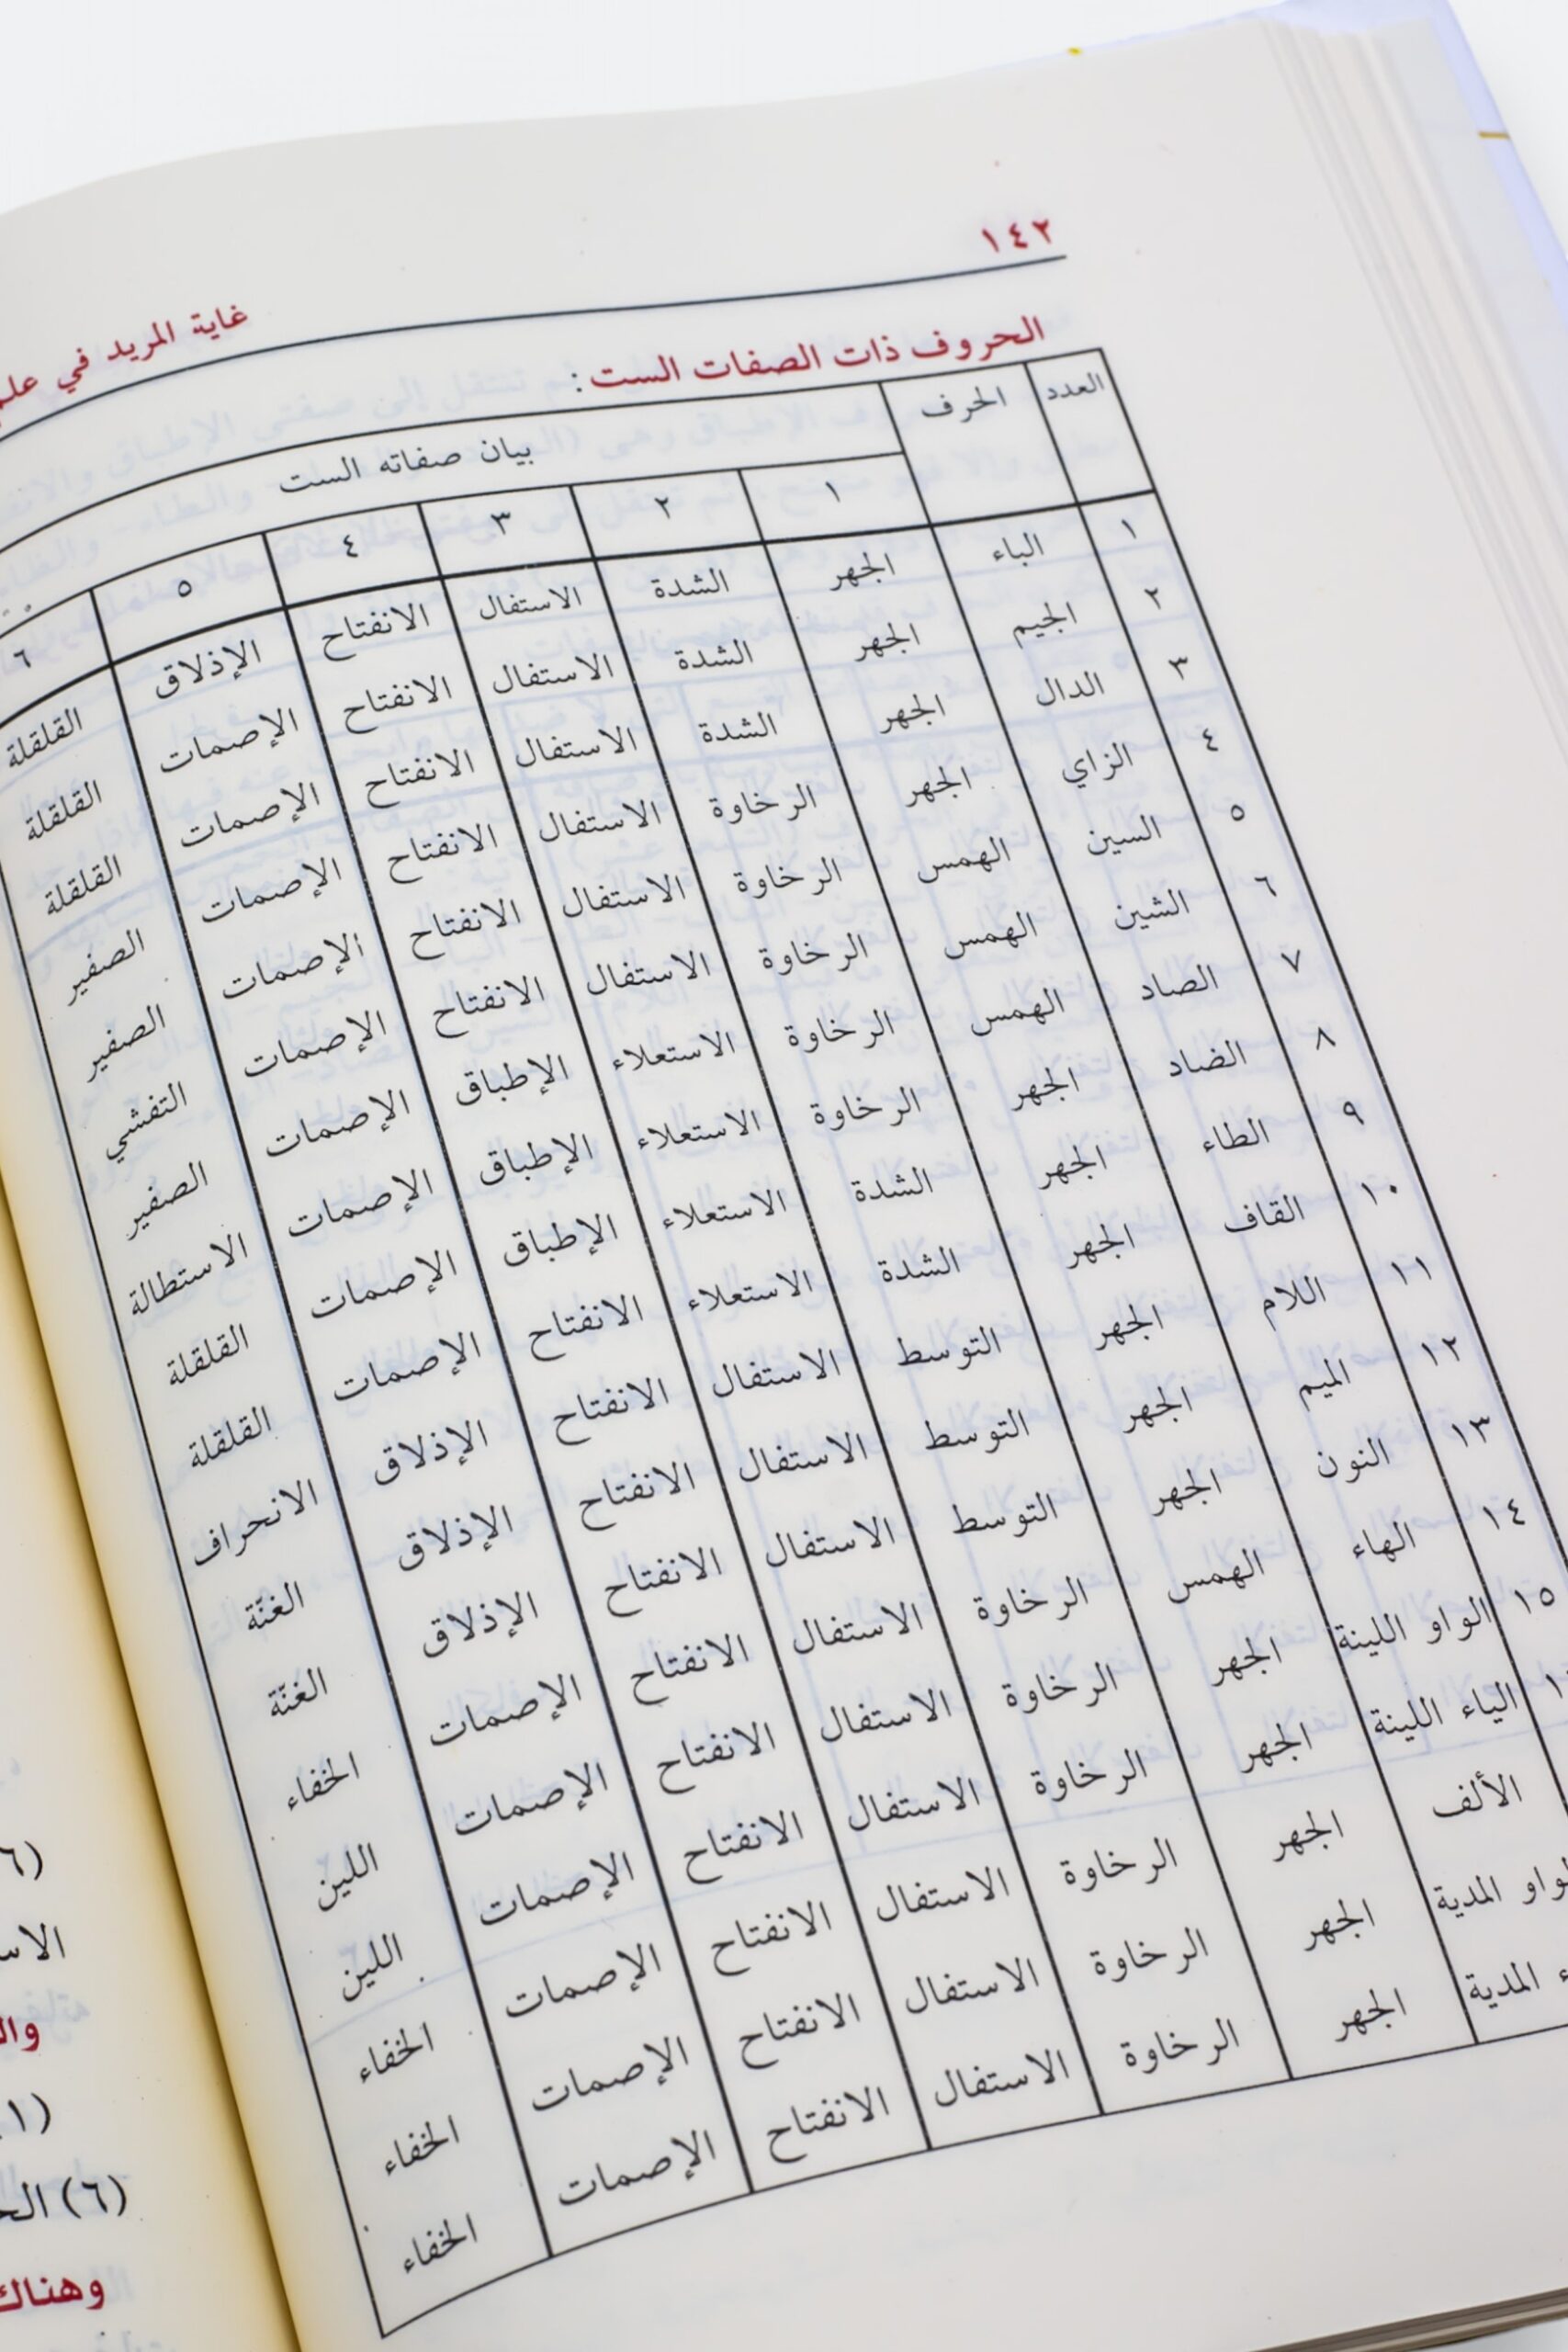 ١٤٢
غاية المريد في
الحروف ذات الصفات الست :
العدد الحرف بيان صفاته الست
١ ٢ ٣ ٤ ٥ ٦
١ الباء الجهر الشدة الاستفال الانفتاح الإذلاق القلقلة
٢ الجيم الجهر الشدة الاستفال الانفتاح الإصمات القلقلة
٣ الدال الجهر الشدة الاستفال الانفتاح الإصمات القلقلة
٤ الزاي الجهر الرخاوة الاستفال الانفتاح الإصمات الصفير
٥ السين الهمس الرخاوة الاستفال الانفتاح الإصمات الصفير
٦ الشين الهمس الرخاوة الاستفال الانفتاح الإصمات التفشي
٧ الصاد الهمس الرخاوة الاستعلاء الإطباق الإصمات الصفير
٨ الضاد الجهر الرخاوة الاستعلاء الإطباق الإصمات الاستطالة
٩ الطاء الجهر الشدة الاستعلاء الإطباق الإصمات القلقلة
١٠ القاف الجهر الشدة الاستعلاء الانفتاح الإصمات القلقلة
١١ اللام الجهر التوسط الاستفال الانفتاح الإذلاق الانحراف
١٢ الميم الجهر التوسط الاستفال الانفتاح الإذلاق الغنّة
١٣ النون الجهر التوسط الاستفال الانفتاح الإذلاق الغنّة
١٤ الهاء الهمس الرخاوة الاستفال الانفتاح الإصمات الخفاء
١٥ الواو اللينة الجهر الرخاوة الاستفال الانفتاح الإصمات اللين
الياء اللينة الجهر الرخاوة الاستفال الانفتاح الإصمات اللين
الألف الجهر الرخاوة الاستفال الانفتاح الإصمات الخفاء
المدية الجهر الرخاوة الاستفال الانفتاح الإصمات الخفاء
المدية الجهر الرخاوة الاستفال الانفتاح الإصمات الخفاء
(٦)
وهناك